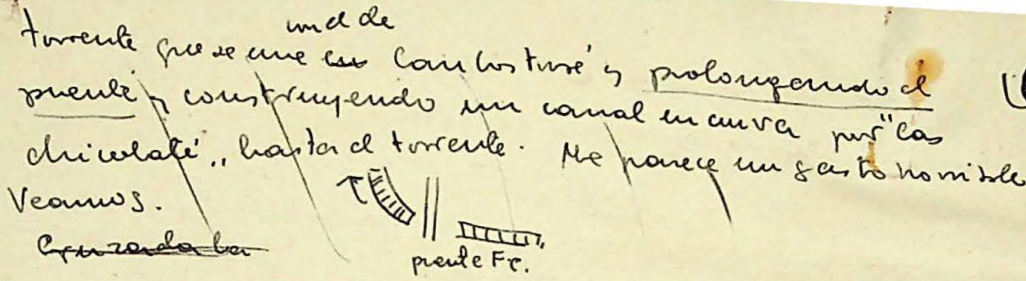 torrente que se une en und de Can Costuré y prolongando el
puente y construyendo un canal en curva por "Cas
chicolaté", hasta el torrente. Me parece un gasto horrible
Veamos.
Cruzada la
puente Fc.